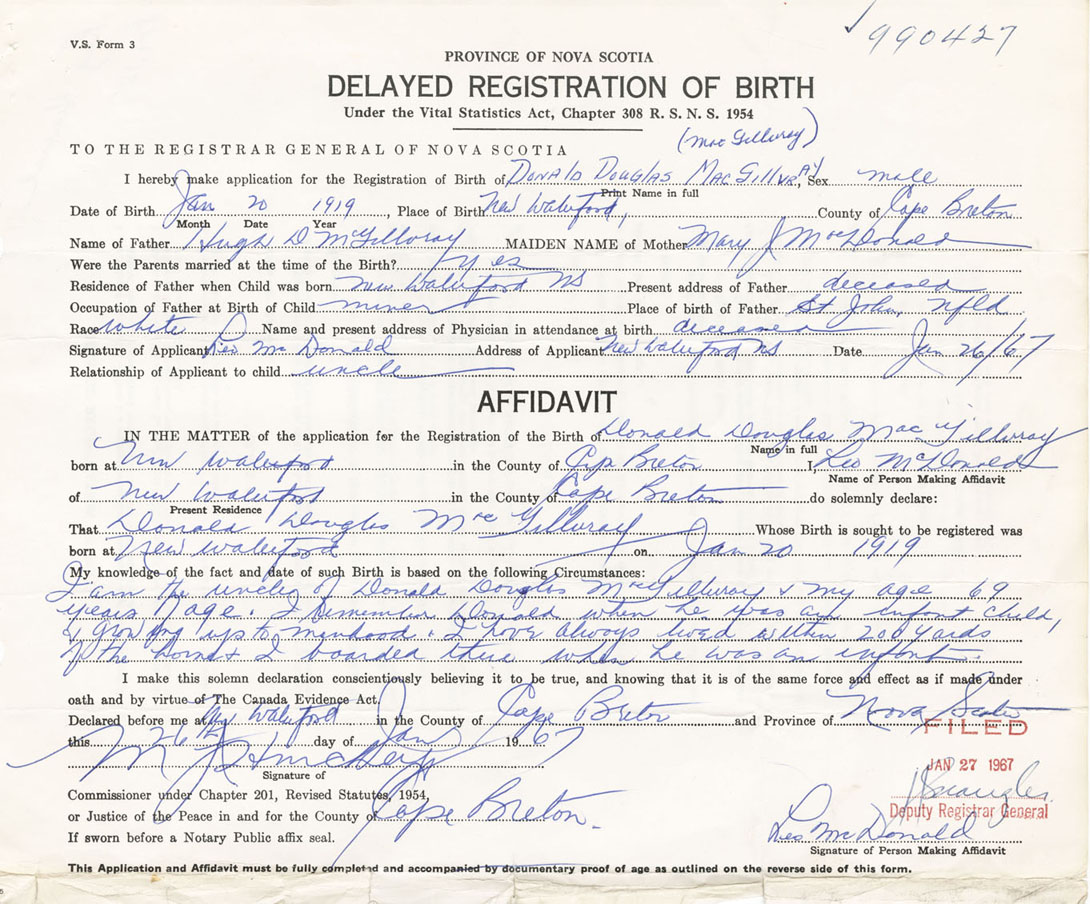 ✓990427
V.S. Form 3
PROVINCE OF NOVA SCOTIA
DELAYED REGISTRATION OF BIRTH
Under the Vital Statistics Act, Chapter 308 R. S. N. S. 1954
(Mac Gillvray)
TO THE REGISTRAR GENERAL OF NOVA SCOTIA
I hereby make application for the Registration of Birth of DONALD DOUGLAS MACGILLVRAY, Sex male
Print Name in full
Date of Birth Jan 20 1919, Place of Birth New Waterford, County of Cape Breton
Month Date Year
Name of Father Hugh D McGillvray MAIDEN NAME of Mother Mary J MacDonald
Were the Parents married at the time of the Birth? yes
Residence of Father when Child was born New Waterford NS Present address of Father deceased
Occupation of Father at Birth of Child miner Place of birth of Father St. John, Nfld
Race White Name and present address of Physician in attendance at birth deceased
Signature of Applicant Leo McDonald Address of Applicant New Waterford NS Date Jan 26/67
Relationship of Applicant to child uncle
AFFIDAVIT
IN THE MATTER of the application for the Registration of the Birth of Donald Douglas MacGillvray
Name in full
born at New Waterford in the County of Cape Breton I, Leo McDonald
Name of Person Making Affidavit
of New Waterford in the County of Cape Breton do solemnly declare:
Present Residence
That Donald Douglas McGillvray Whose Birth is sought to be registered was
born at New Waterford on Jan 20 1919
My knowledge of the fact and date of such Birth is based on the following Circumstances:
I am the uncle of Donald Douglas MacGillvray & my age 69
years of age. I remember Donald when he was an infant child,
& growing up to manhood. I have always lived within 200 yards
of the home & I boarded there when he was an infant.
I make this solemn declaration conscientiously believing it to be true, and knowing that it is of the same force and effect as if made under
oath and by virtue of The Canada Evidence Act.
Declared before me at N. Waterford in the County of Cape Breton and Province of Nova Scotia
this 26th day of Jan 1967
FILED
JAN 27 1967
Signature of
Commissioner under Chapter 201, Revised Statutes, 1954,
Deputy Registrar General
or Justice of the Peace in and for the County of Cape Breton.
If sworn before a Notary Public affix seal.
Leo McDonald
Signature of Person Making Affidavit
This Application and Affidavit must be fully completed and accompanied by documentary proof of age as outlined on the reverse side of this form.